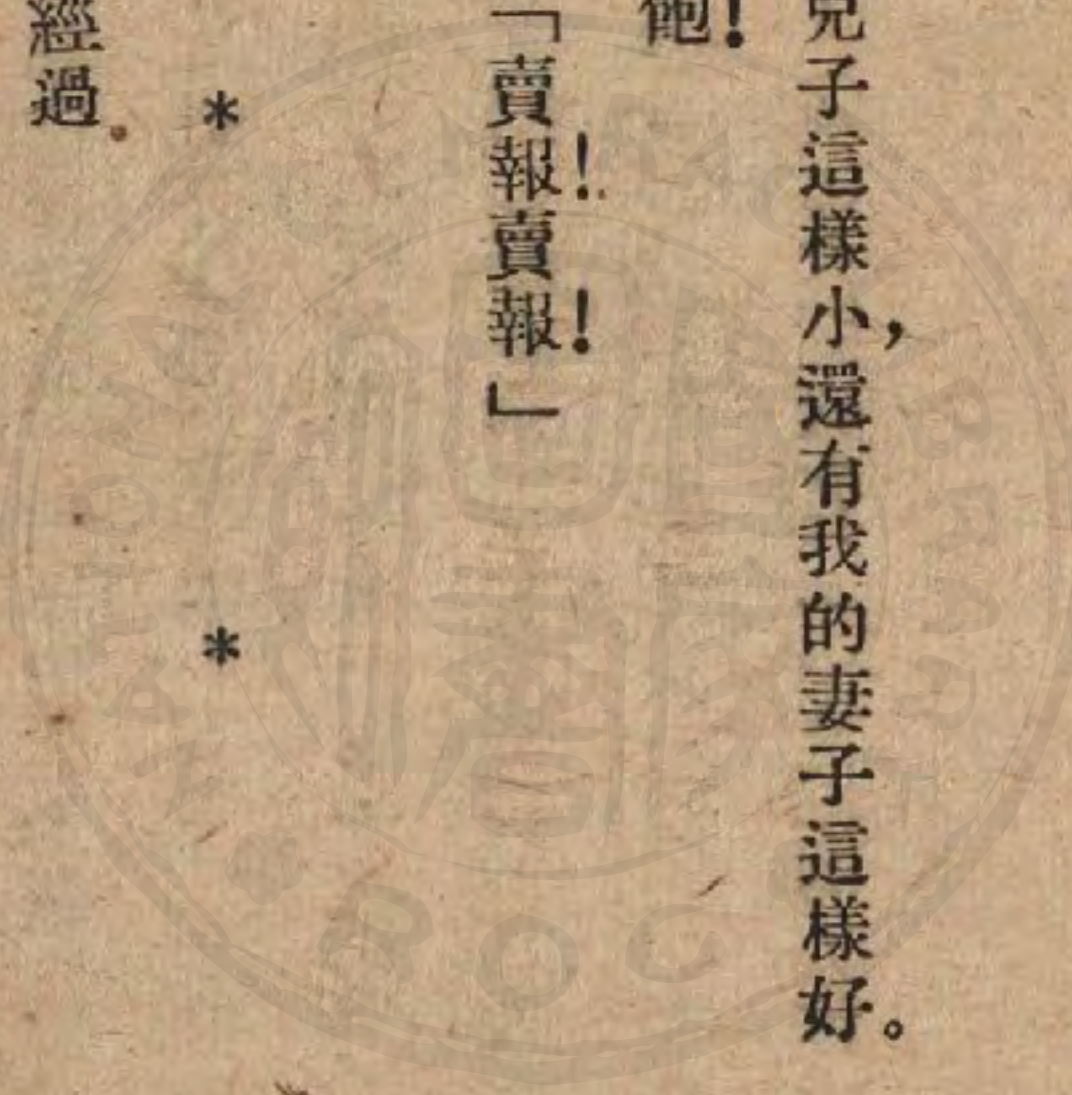 兒子這樣小，還有我的妻子這樣好。
飽！
「賣報！賣報！」
＊　＊
經過